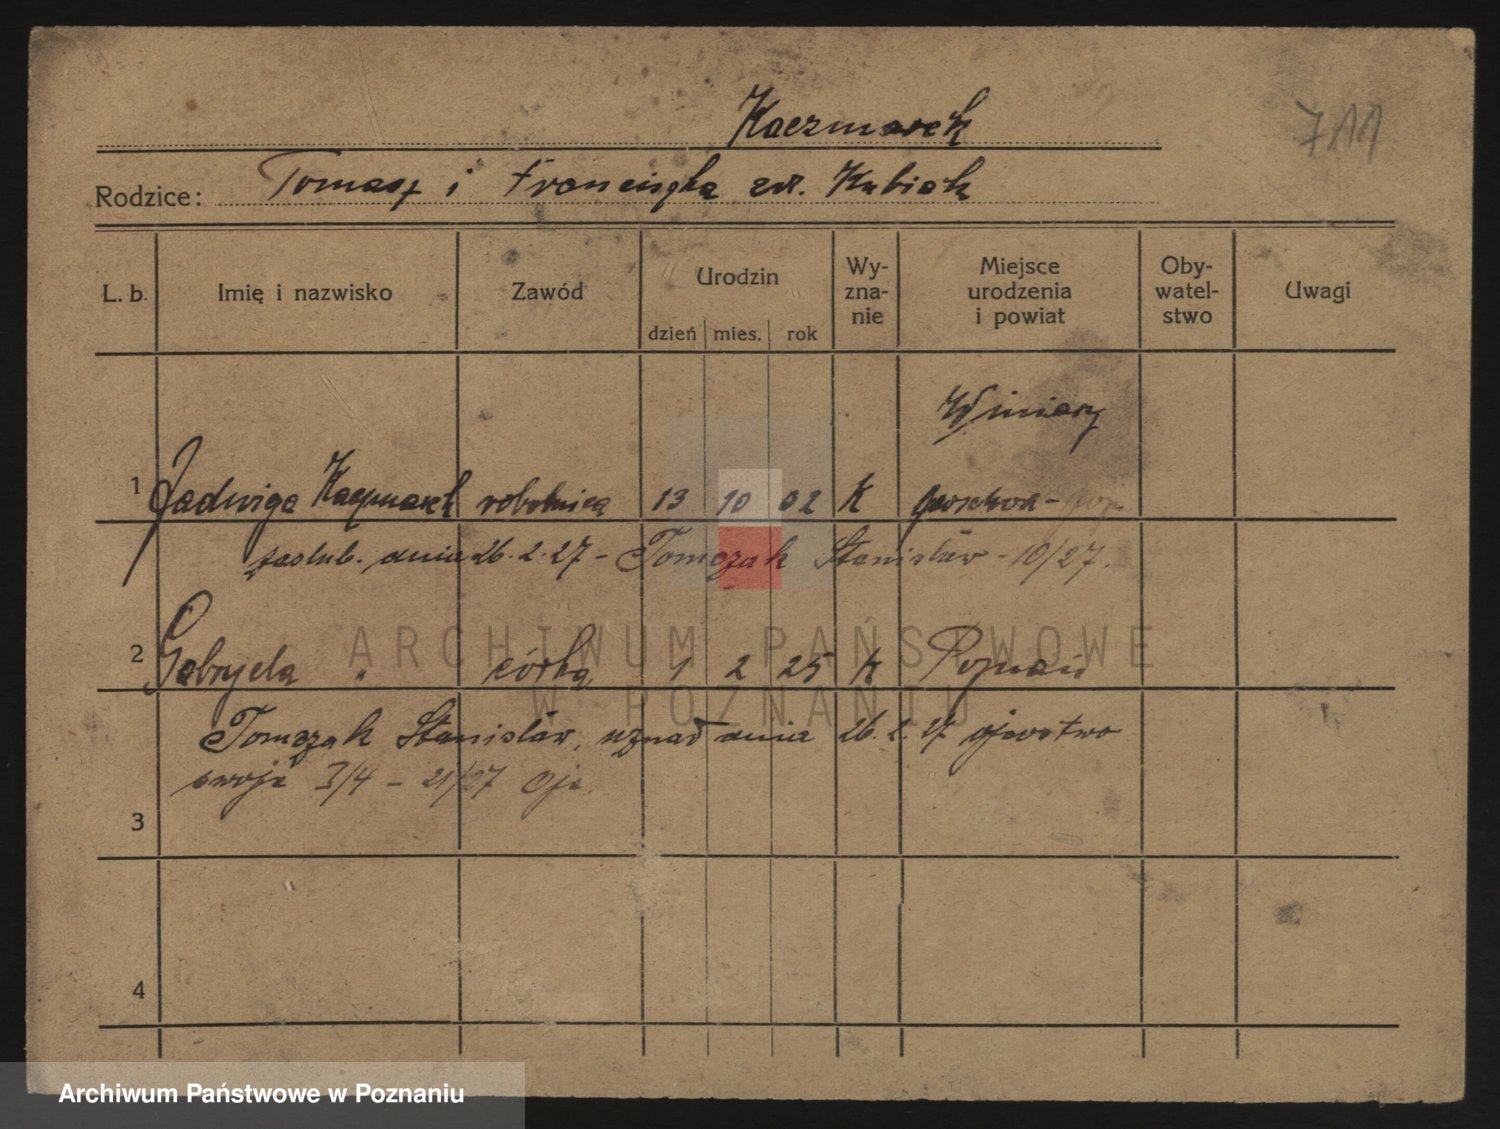 Kaczmarek
711
Rodzice: Tomasz i Franciszka zd. Kubiak
L. b. Imię i nazwisko Zawód Urodzin Wyznanie Miejsce urodzenia i powiat Obywatelstwo Uwagi
dzień mies. rok
Winiary
1 Jadwiga Kaczmarek robotnica 13 10 02 K
zaślub. dnia 26. 2. 27 - Tomczak Stanisław - 10/27.
2 Gabryela " córka 1 2 25 K Poznań
ARCHIWUM PAŃSTWOWE
W POZNANIU
Tomczak Stanisław, uznał dnia 26. 2. 27 ojcostwo
swoje 3/4 - 21/27
3
4
Archiwum Państwowe w Poznaniu